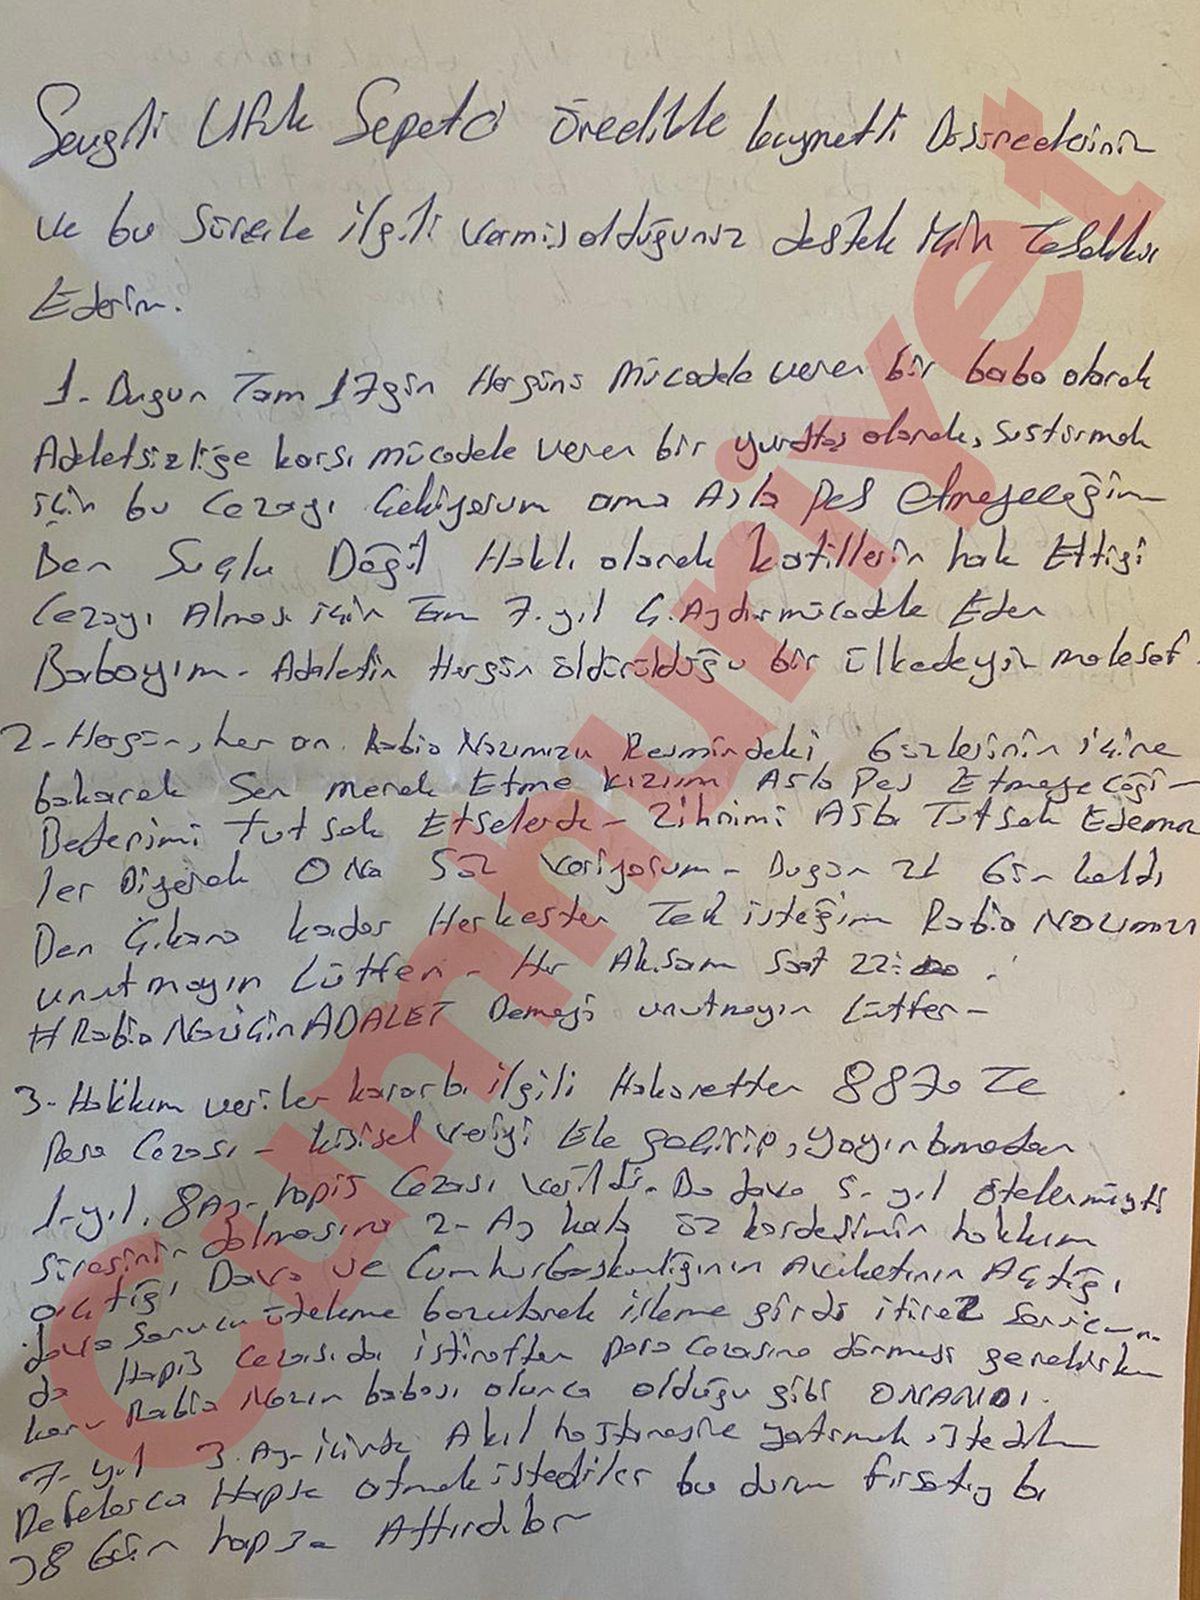 Sevgili Ufuk Sepetci öncelikle kıymetli Düşünceleriniz
ve bu Süreçle ilgili vermiş olduğunuz destek için Teşekkür
Ederim.
1- Bugün Tam 17 gün Hergünü Mücadele veren bir baba olarak
Adaletsizliğe karşı mücadele veren bir yurttaş olarak, susturmak
için bu Cezayı Çekiyorum ama Asla pes etmeyeceğim
Ben Suçlu Değil Haklı olarak katillerin hak Ettiği
Cezayı Alması için Tam 7. yıl Aydır mücadele Eden
Babayım- Adaletin Hergün öldürüldüğü bir ülkedeyiz malesef.
2- Hergün, her an Rabia Nazımızın Resmindeki Gözlerinin içine
bakarak Sen merak Etme kızım Asla pes Etmeyeceği-
Bedenimi Tutsak Etselerde- Zihnimi Asla Tutsak Edemez
ler Diyerek ONa Söz Veriyorum- Bugün 21 Gün kaldı
Ben Çıkana kadar Herkesten Tek isteğim Rabia Nazımızı
unutmayın Lütfen- Her Akşam Saat 22:00
#RabiaNaziçinADALET Demeyi unutmayın Lütfen-
3- Hakkım verilen kararla ilgili Hakaretten 8870 TL
Para Cezası - kişisel Veriyi Ele geçirip, yayınlamadan
1-yıl, 8 Ay- hapis Cezası verildi- Bu dava 5-yıl ötelenmişti
Süresinin dolmasına 2- Ay kala öz kardeşimin hakkım
açtığı Dava ve Cumhurbaşkanlığının Avukatının Açtığı
dava sonucu öteleme bozularak işleme girdi itiraz Sonucun-
da Hapis Cezasıda istinaftan para Cezasına dönmesi gerekirken
konu Rabia Nazın babası olunca olduğu gibi ONANDI.
7- yıl 3. Ay- içinde Akıl hastanesine yatırmak istediler
Defalarca Hapse atmak istediler bu durum fırsatıyla
38 Gün hapse Attırdılar